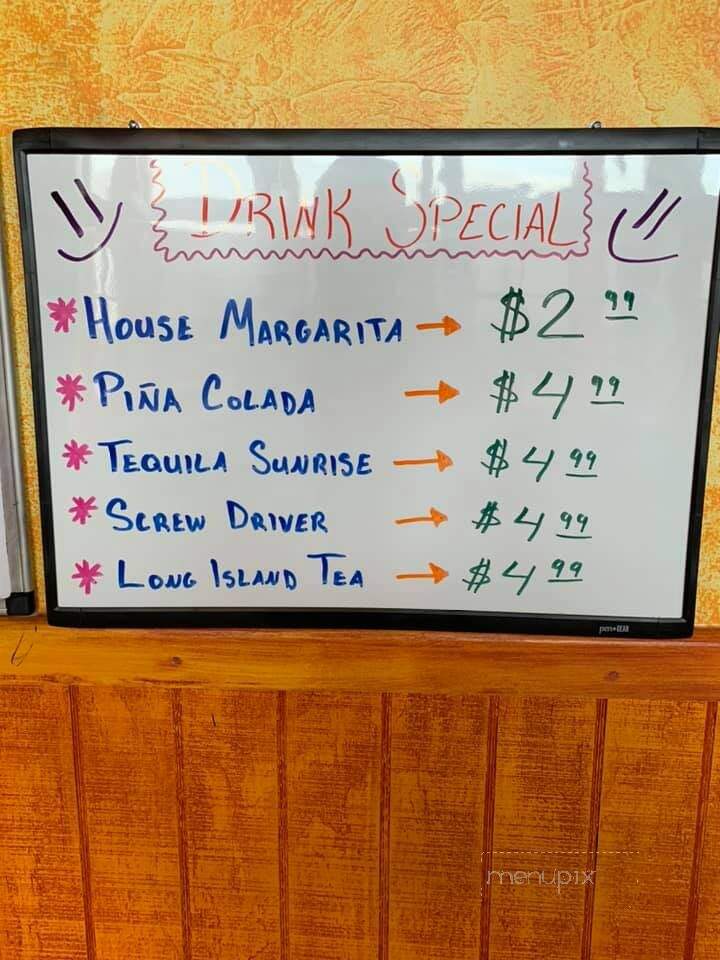 DRINK SPECIAL
* HOUSE MARGARITA → $2 99
* PIÑA COLADA → $4 99
* TEQUILA SUNRISE → $4 99
* SCREW DRIVER → $4 99
* LONG ISLAND TEA → $4 99
menupix